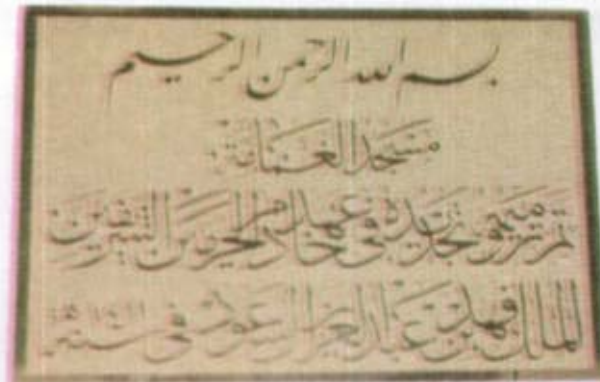 بسم الله الرحمن الرحيم
مسجد الغمامة
تم ترميمه وتجديده في عهد خادم الحرمين الشريفين
الملك فهد بن عبد العزيز آل سعود في سنة